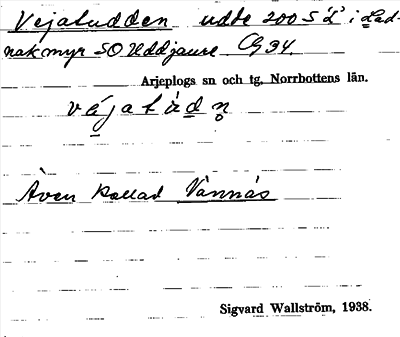 Vejaludden udde 200 S "L" i Lad-
nakmyr SO Uddjaure CG 34.
Arjeplogs sn och tg, Norrbottens län.
Även kallad Vännäs
Sigvard Wallström, 1938.